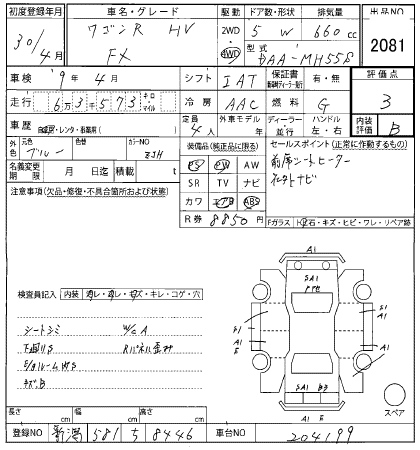 初度登録年月 車名・グレード 駆動 ドア数・形状 排気量 出品NO
30/4月 ワゴンR HV 2WD 4WD 5 W 660 cc 2081
FX 型式 DAA-MH55S
車検 '9年 4月 シフト IAT 保証書 新車時ディーラー発行 有・無 評価点
走行 6万3千573 キロ・マイル 冷房 AAC 燃料 G 3
車歴 自家用・レンタ・事業用( ) 定員 4人 外車モデル 年 ディーラー 並行 ハンドル 左・右 内装評価 B
外色 元色 ブルー 色替 カラーNO ZJH 装備品(純正品に限る) セールスポイント(正常に作動するもの)
PS PW AW 前席シートヒーター
名義変更期限 月 日 積載量 t SR TV ナビ
注意事項(欠品・修復・不具合箇所および状態) カワ エアB ABS
R券 8850円 Fガラス 飛石・キズ・ヒビ・ワレ・リペア跡
A1
SA1
検査員記入 内装 コレ・ヨレ・キズ・キレ・コゲ・穴
シートシミ W/C A
下廻りS Rパネル歪み
E/gルームサS
S1
A1
E
S1
A1
A1
SA1 B3
A1 E
スペア
長さ cm 幅 cm 高さ cm
登録NO 新潟 581 ち 8446 車台NO 204199